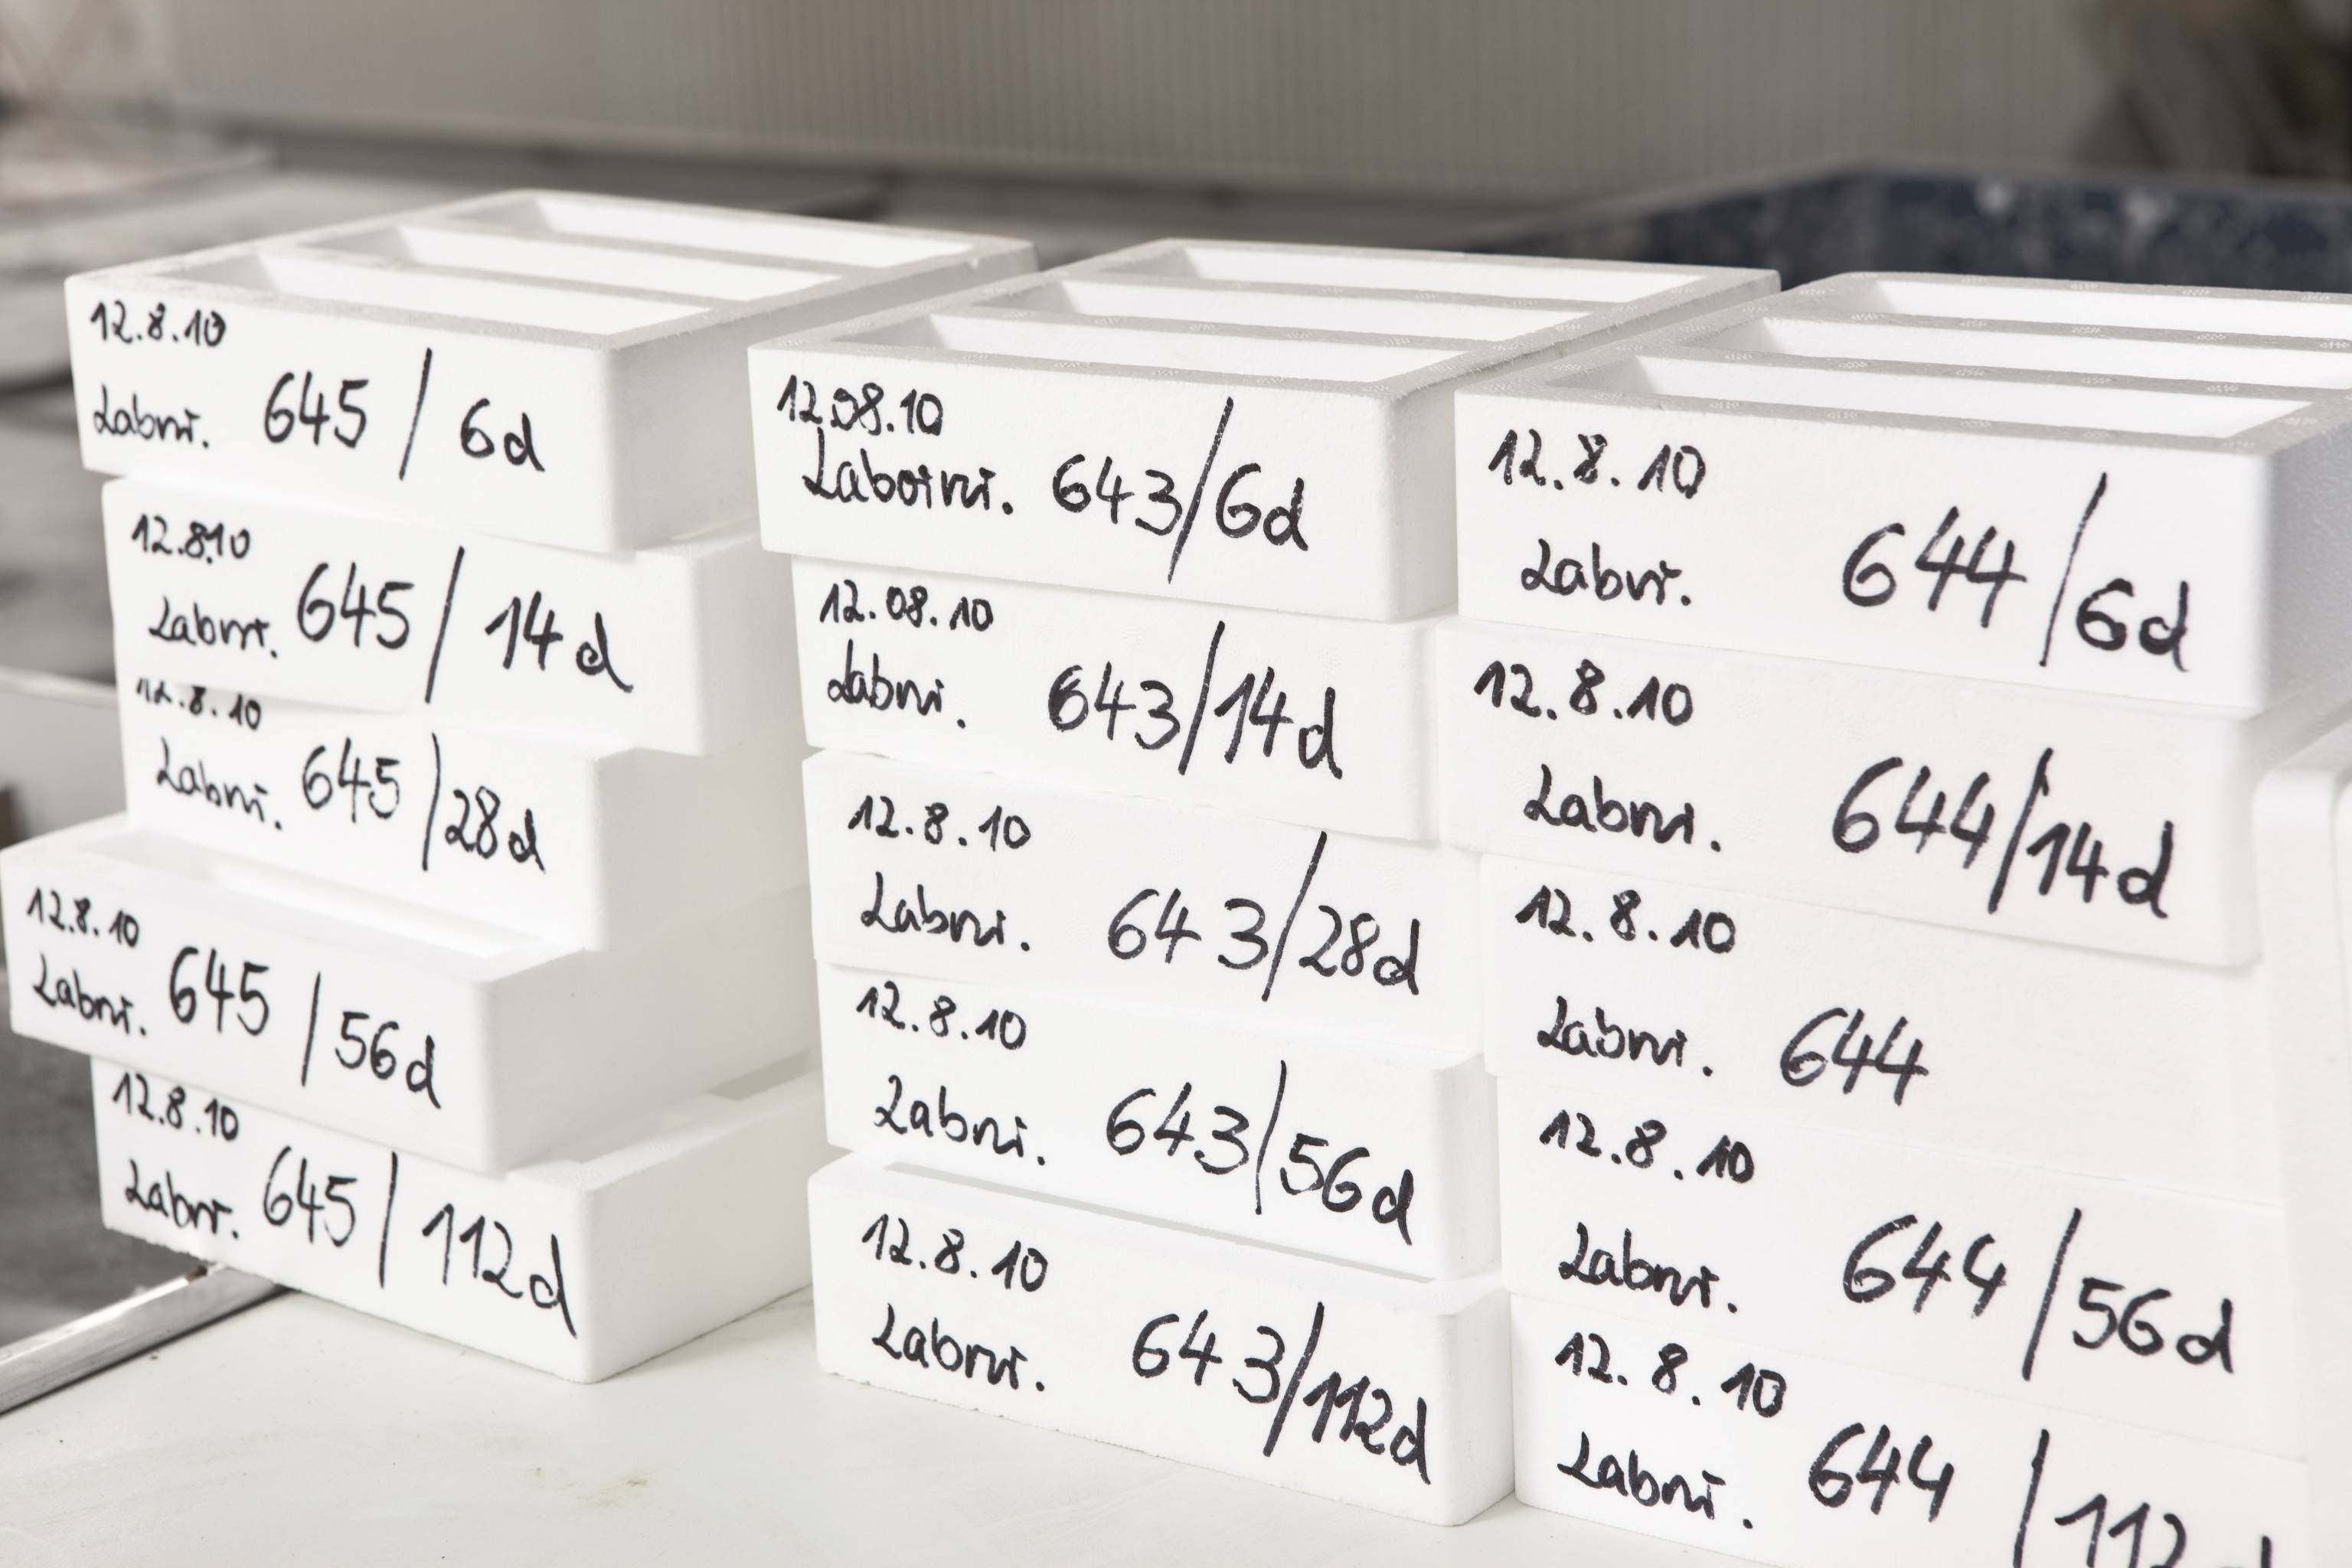 12.8.10
Labnr. 645 / 6d
12.8.10
Labnr. 645 / 14d
12.8.10
Labnr. 645 / 28d
12.8.10
Labnr. 645 / 56d
12.8.10
Labnr. 645 / 112d
12.08.10
Labornr. 643/6d
12.08.10
Labnr. 643/14d
12.8.10
Labnr. 643/28d
12.8.10
Labnr. 643/56d
12.8.10
Labnr. 643/112d
12.8.10
Labnr. 644/6d
12.8.10
Labnr. 644/14d
12.8.10
Labnr. 644
12.8.10
Labnr. 644/56d
12.8.10
Labnr. 644 / 112d